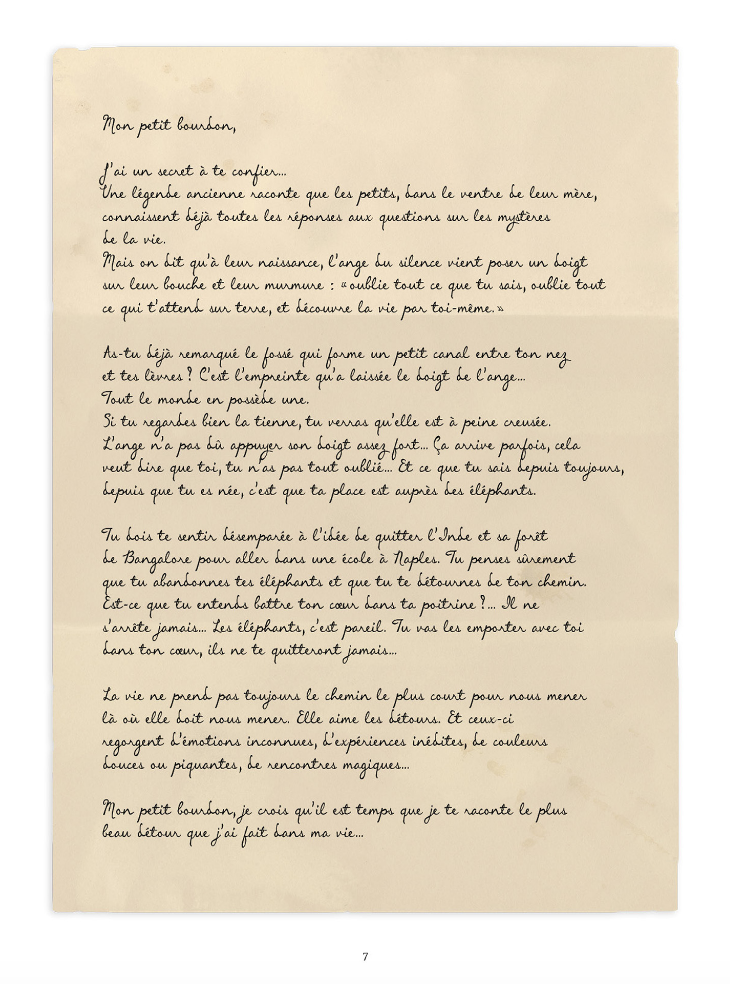 Mon petit bourdon,
J'ai un secret à te confier...
Une légende ancienne raconte que les petits, dans le ventre de leur mère,
connaissent déjà toutes les réponses aux questions sur les mystères
de la vie.
Mais on dit qu'à leur naissance, l'ange du silence vient poser un doigt
sur leur bouche et leur murmure : « oublie tout ce que tu sais, oublie tout
ce qui t'attend sur terre, et découvre la vie par toi-même. »
As-tu déjà remarqué le fossé qui forme un petit canal entre ton nez
et tes lèvres ? C'est l'empreinte qu'a laissée le doigt de l'ange...
Tout le monde en possède une.
Si tu regardes bien la tienne, tu verras qu'elle est à peine creusée.
L'ange n'a pas dû appuyer son doigt assez fort... Ça arrive parfois, cela
veut dire que toi, tu n'as pas tout oublié... Et ce que tu sais depuis toujours,
depuis que tu es née, c'est que ta place est auprès des éléphants.
Tu dois te sentir désemparée à l'idée de quitter l'Inde et sa forêt
de Bangalore pour aller dans une école à Naples. Tu penses sûrement
que tu abandonnes tes éléphants et que tu te détournes de ton chemin.
Est-ce que tu entends battre ton cœur dans ta poitrine ?... Il ne
s'arrête jamais... Les éléphants, c'est pareil. Tu vas les emporter avec toi
dans ton cœur, ils ne te quitteront jamais...
La vie ne prend pas toujours le chemin le plus court pour nous mener
là où elle doit nous mener. Elle aime les détours. Et ceux-ci
regorgent d'émotions inconnues, d'expériences inédites, de couleurs
douces ou piquantes, de rencontres magiques...
Mon petit bourdon, je crois qu'il est temps que je te raconte le plus
beau détour que j'ai fait dans ma vie...
7